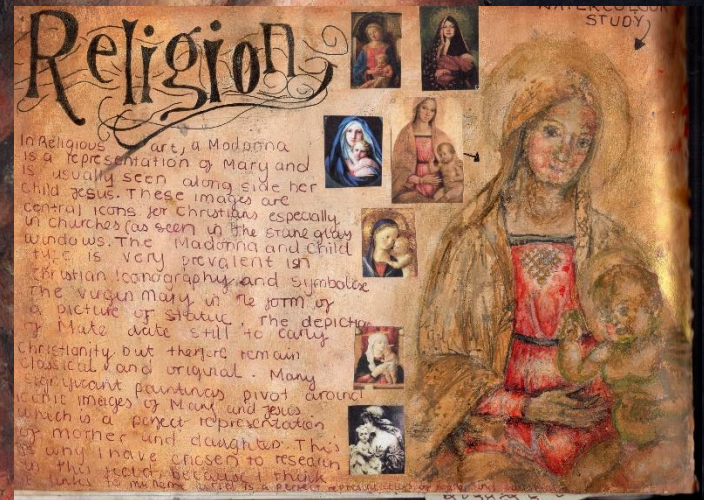 Religion
WATERCOLOUR
STUDY
In Religious art, a Madonna
is a representation of Mary and
is usually seen along side her
child Jesus. These images are
central icons for Christians especially
in churches (as seen in the stane glass
windows. The Madonna and Child
is very prevalent isn
Christian Iconography and symbolise
The virgin Mary in the form of
a picture of statue. The depiction
of Mate date still to early
Christianity but there remain
classical and original. Many
significant paintings pivot around
iconic images of Mary and Jesus
which is a perfect representation
of mother and daughter. This
is why I have chosen to research
in this field, because I think
it links to my